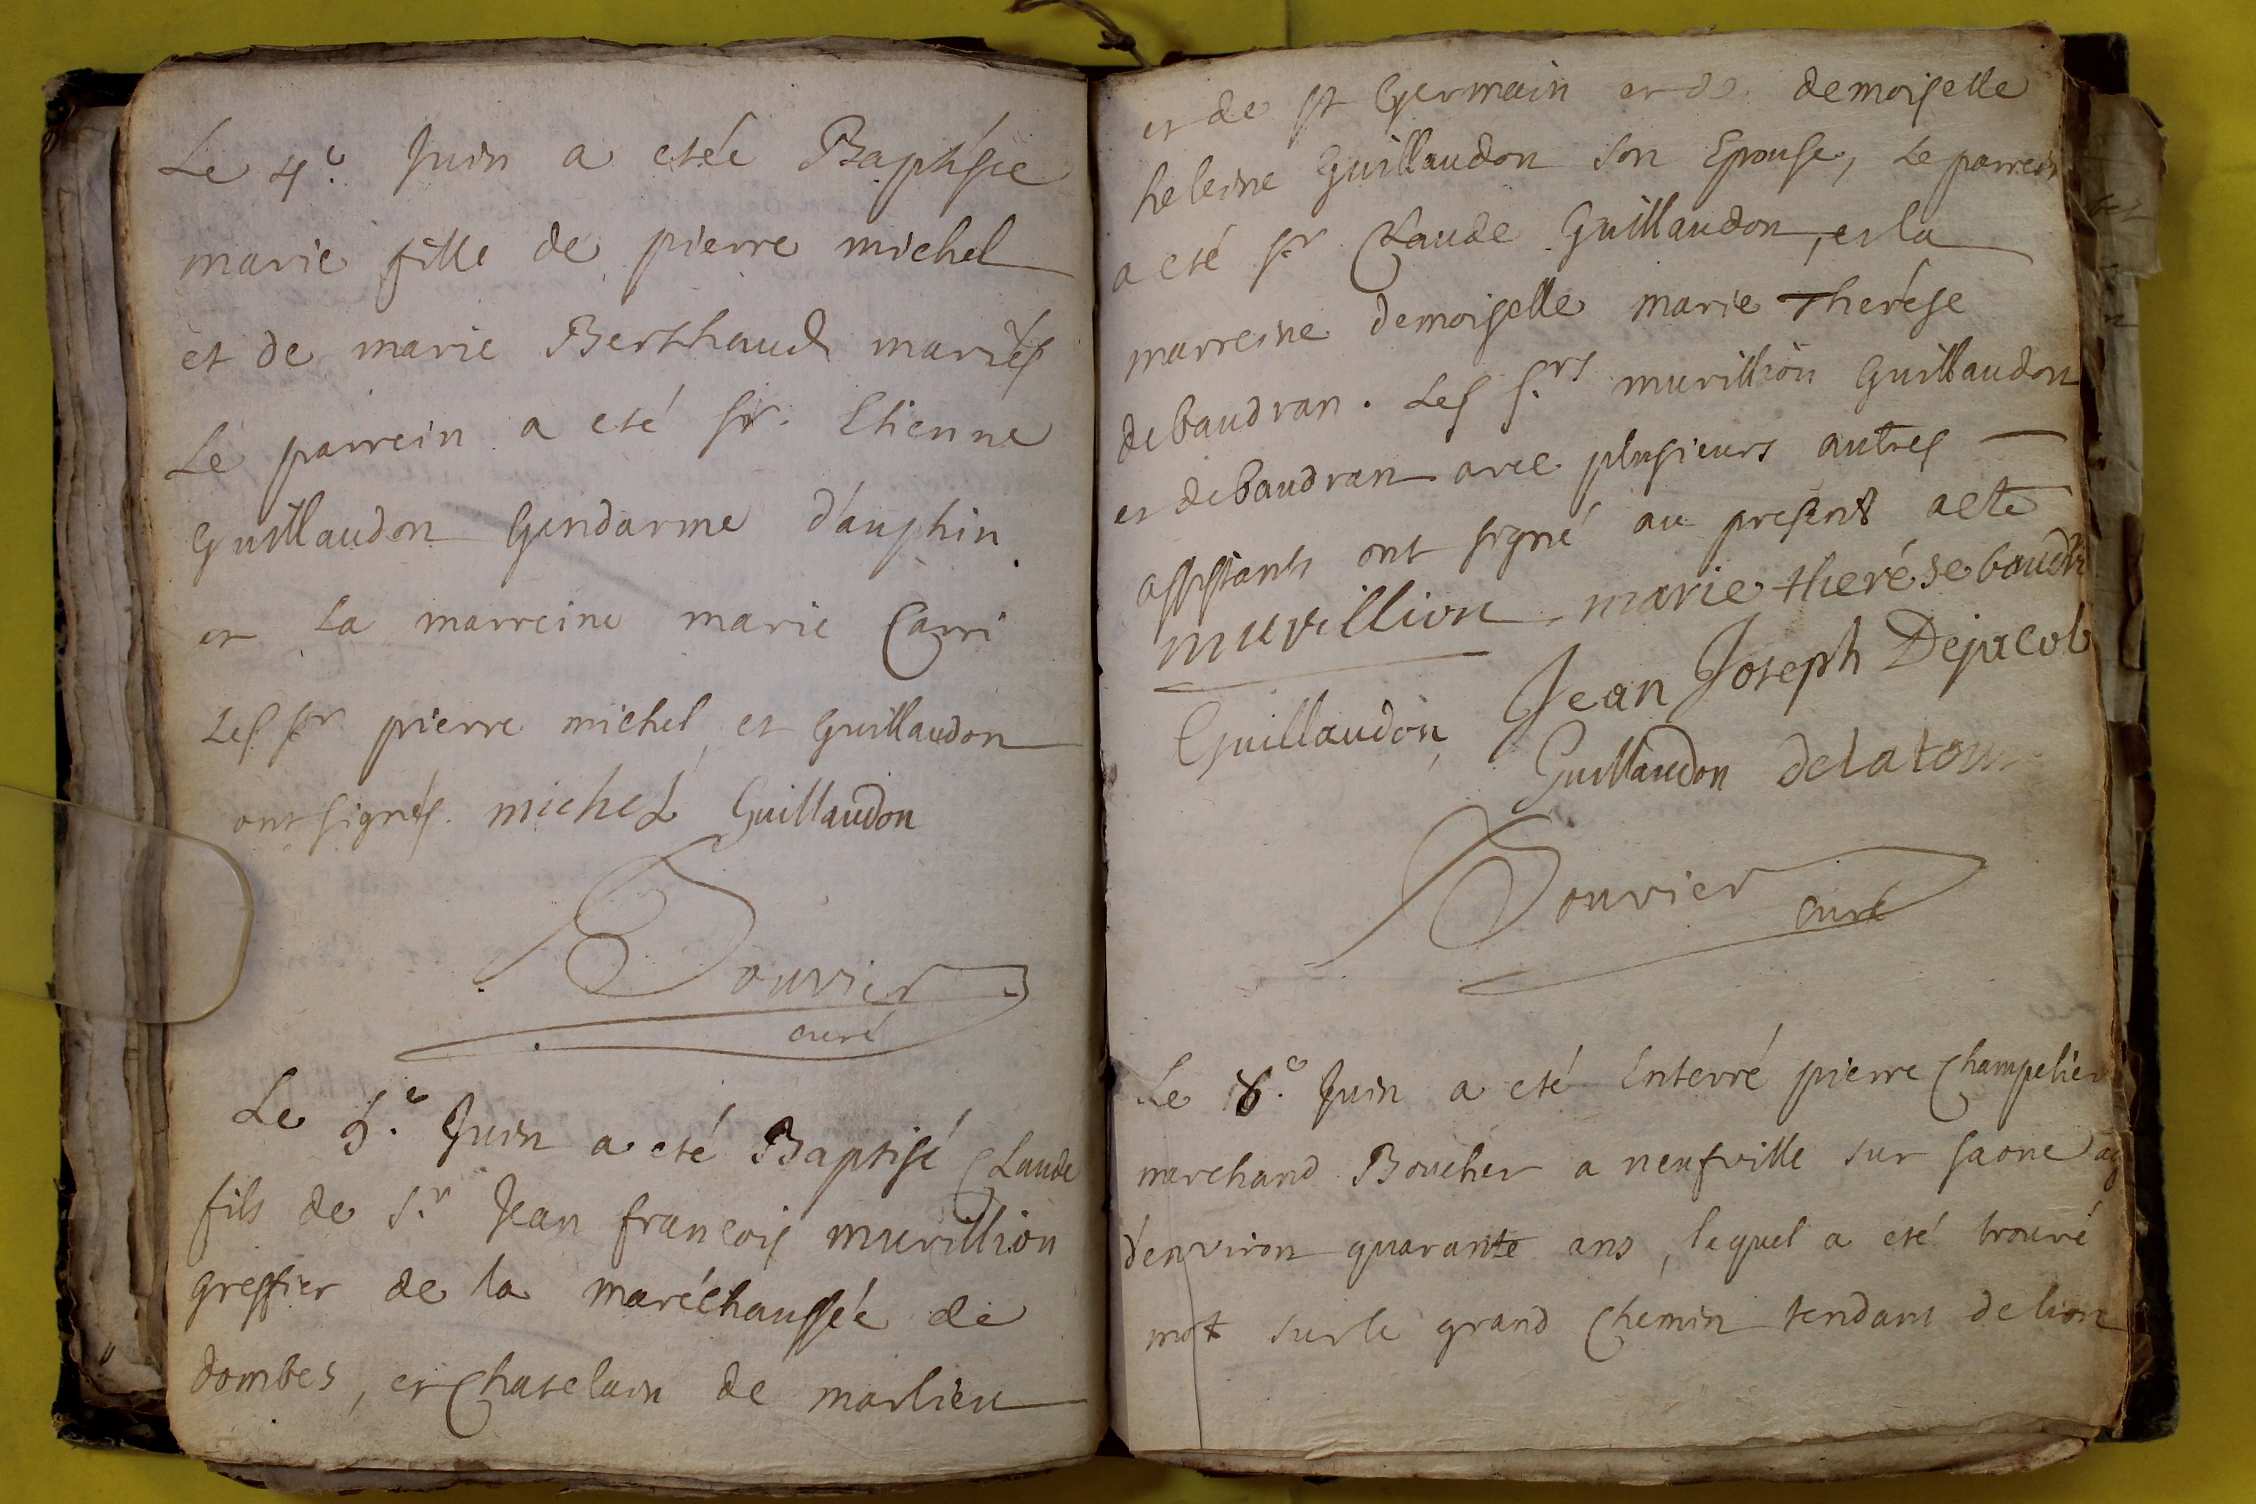 Le 4e. Juin a etée Baptésée
marie fille de pierre michel
et de marie Berthaud mariés
Le parrein a eté sr. Etienne
Guillaudon Gendarme d'auphin
et La marreine marie Carri
Les sr pierre michel, et Guillaudon
ont signés. michel Guillaudon
Bouvier
curé
Le 5.e Juin a eté Baptisé Claude
fils de s.r Jean francois murillion
greffier de la maréchaussée de
dombes, et Chatelain de marlieu
et de st Germain et de demoiselle
heleine Guillaudon son Epouse, Le parrein
a eté sr Claude Guillaudon, et la
marreine demoiselle marie Therése
debaudran. Les s.rs murillion Guillaudon
et debaudran avec plusieurs autres
assistants ont signé au present acte
murillion marie therése baudr
Jean Joseph Dejacob
Guillaudon,
Guillaudon delatour
Bouvier
curé
Le 8.e Juin a eté Enterré pierre Champelier
marchand Boucher a neufville sur saone ag
d'environ quarante ans, lequel a eté trouvé
mot sur le grand Chemin tendant de lion